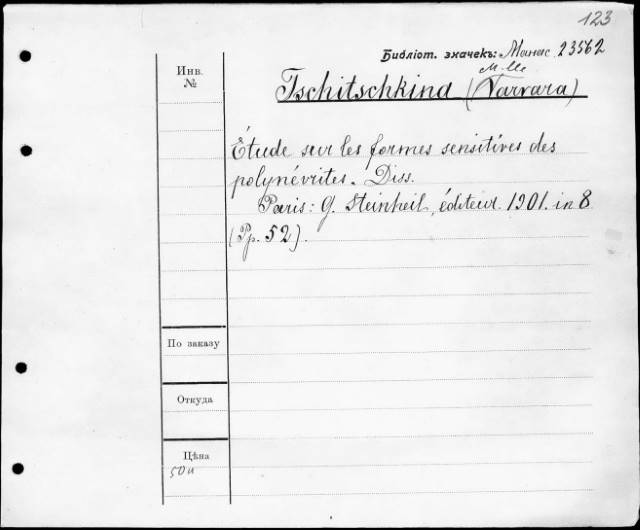 123
Библіот. значекъ: Манас 23562
Инв.
№
M-lle
Tschitschkind (Varvara)
Étude sur les formes sensitives des
polynévrites. Diss.
Paris: G. Steinheil, éditeur. 1901. in 8
(Pp. 52).
По заказу
Откуда
Цѣна
50к